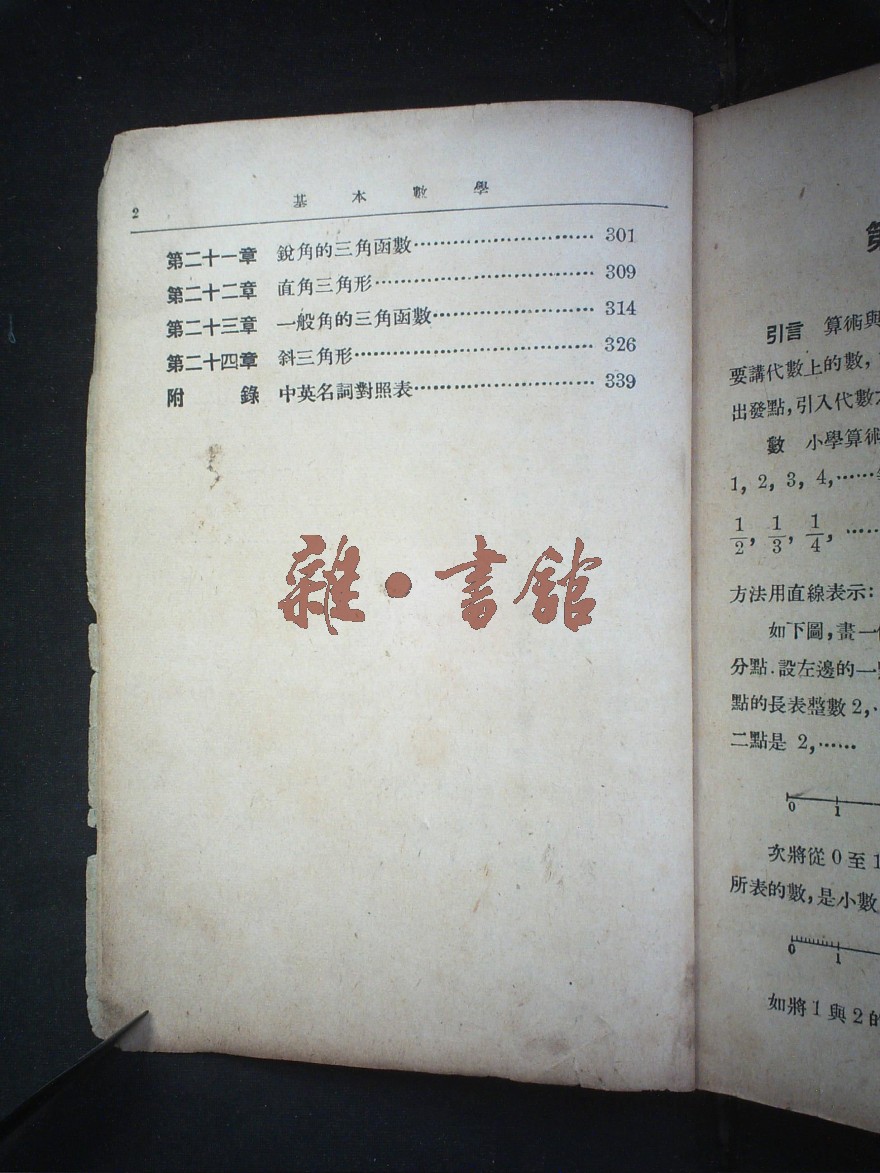 2
基本數學
第二十一章 銳角的三角函數…………………… 301
第二十二章 直角三角形…………………… 309
第二十三章 一般角的三角函數…………………… 314
第二十四章 斜三角形…………………… 326
附錄 中英名詞對照表…………………… 339
雜·書館
引言 算術與
要講代數上的數,
出發點,引入代數
數 小學算術
1, 2, 3, 4,……
1/2, 1/3, 1/4, ……
方法用直線表示:
如下圖,畫一
分點.設左邊的一
點的長表整數2,
二點是 2,……
0 1
次將從0至1
所表的數,是小數
0 1
如將1與2的